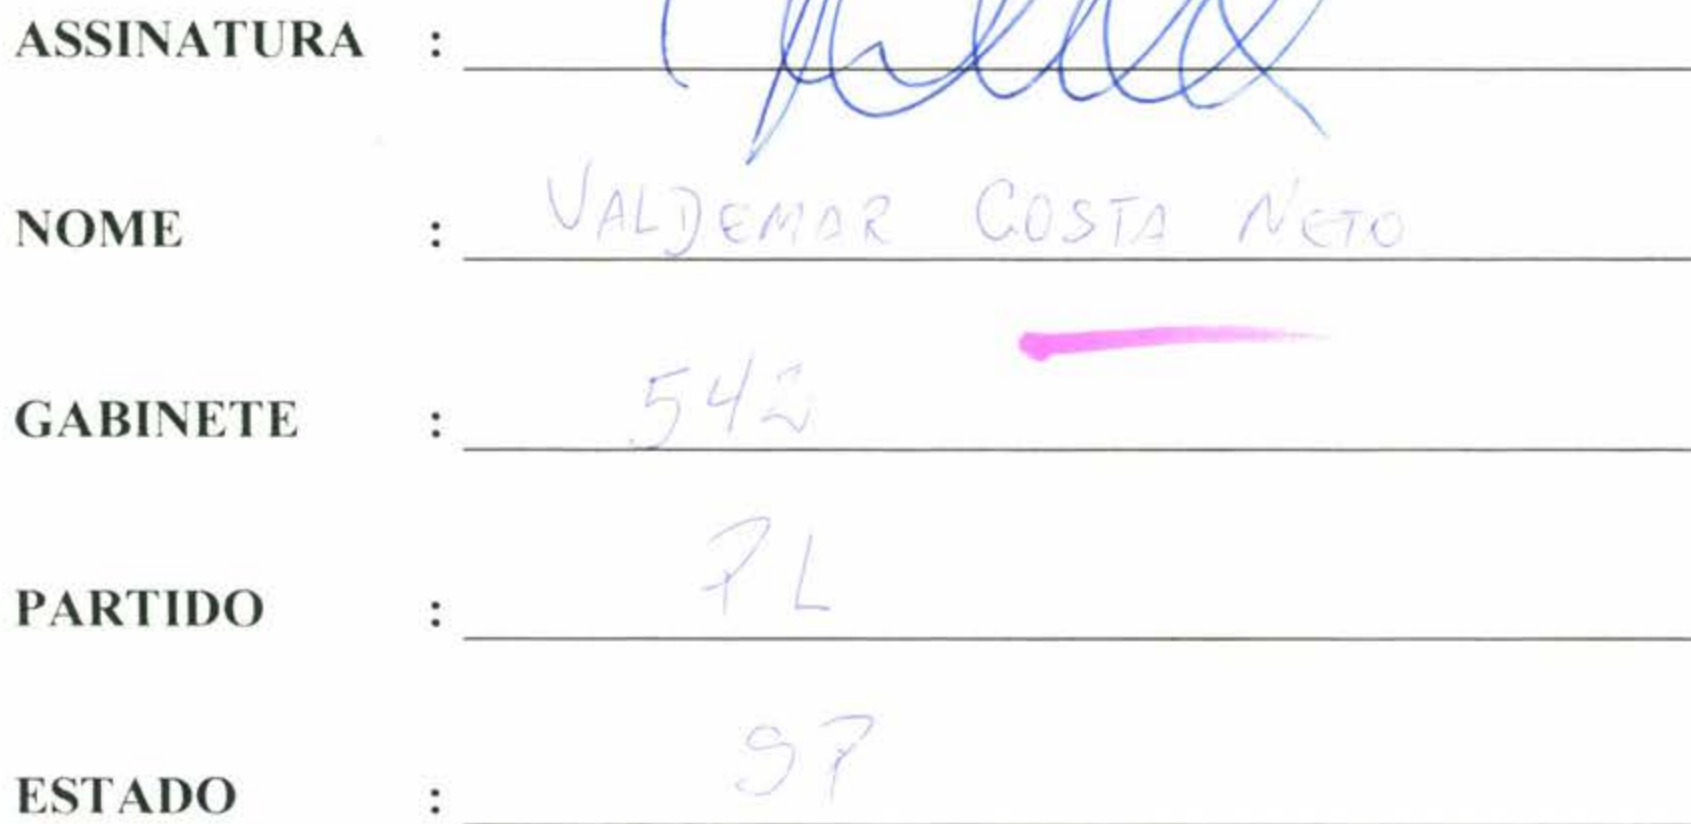 ASSINATURA :
NOME : VALDEMAR COSTA NETO
GABINETE : 542
PARTIDO : PL
ESTADO : SP